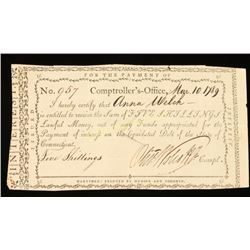 FOR THE PAYMENT OF
No. 957 Comptroller's-Office, Mar. 10 1789
I hereby certify that Anna Welch
is entitled to receive the Sum of FIVE SHILLINGS
Lawful Money, out of any Funds appropriated for the
Payment of interest on the Liquidated Debt of the State of
Connecticut.
Five Shillings Compt.
HARTFORD: PRINTED BY HUDSON AND GOODWIN.